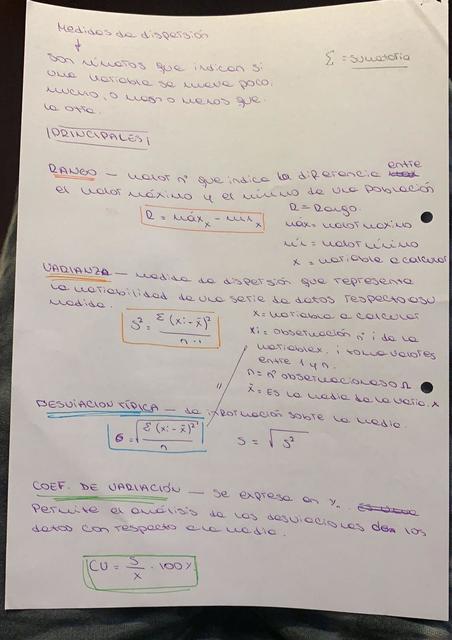 Medidas de dispersión
↓
Son números que indican si
una variable se mueve poco,
mucho, o mas o menos que
la otra.
Σ = sumatoria
PRINCIPALES
RANGO — valor nº que indica la diferencia entre
el valor máximo y el mínimo de una población
R = máx x - min x
R = Rango.
máx = valor maximo
mín = valor mínimo
x = variable a calcular
VARIANZA — medida de dispersión que representa
la variabilidad de una serie de datos respecto a su
media.
S² = Σ (xi - x̄)² / n
x = variable a calcular
xi = observación nº i de la
variable x, i toma valores
entre 1 y n.
n = nº observaciones
x̄ = Es la media de la varia. x
DESVIACION TÍPICA — da información sobre la media.
σ = √ Σ (xi - x̄)² / n
S = √ S²
COEF. DE VARIACIÓN — se expresa en %.
Permite el análisis de las desviaciones de los
datos con respecto a la media.
CV = S / x · 100%